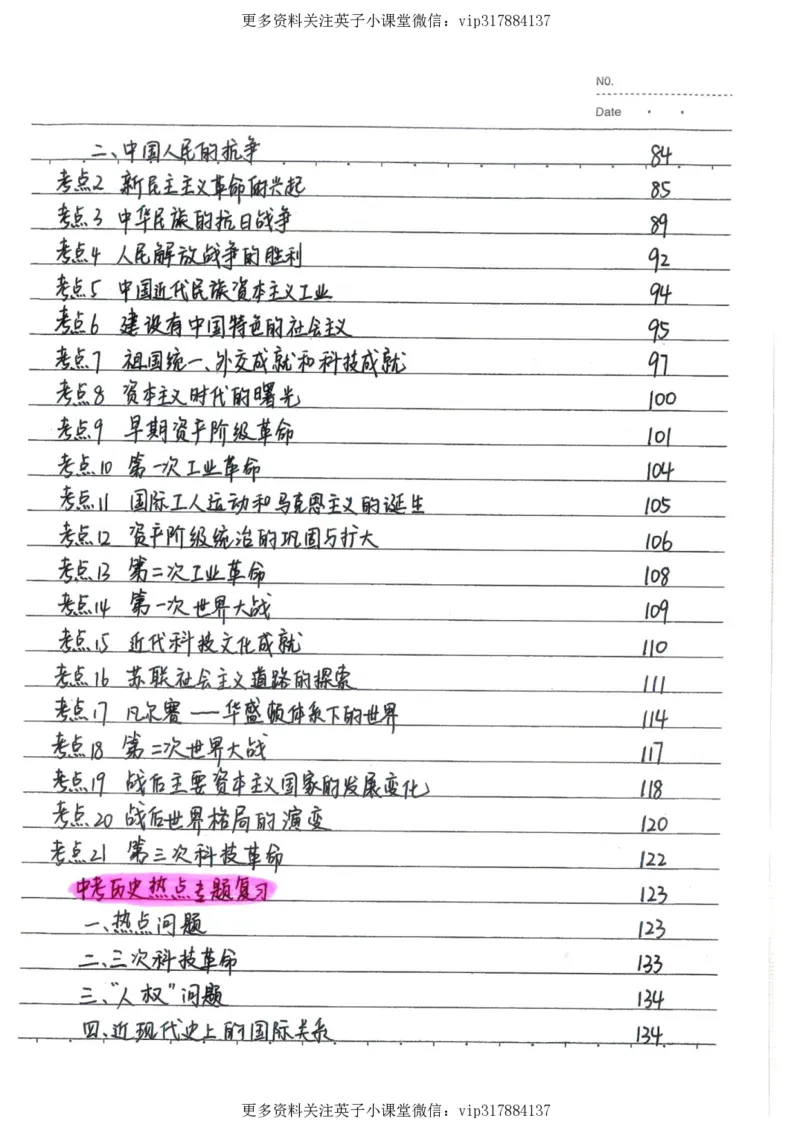 更多资料关注英子小课堂微信：vip317884137
NO.
Date
二、中国人民的抗争 84
考点2 新民主主义革命的兴起 85
考点3 中华民族的抗日战争 89
考点4 人民解放战争的胜利 92
考点5 中国近代民族资本主义工业 94
考点6 建设有中国特色的社会主义 95
考点7 祖国统一、外交成就和科技成就 97
考点8 资本主义时代的曙光 100
考点9 早期资产阶级革命 101
考点10 第一次工业革命 104
考点11 国际工人运动和马克思主义的诞生 105
考点12 资产阶级统治的巩固与扩大 106
考点13 第二次工业革命 108
考点14 第一次世界大战 109
考点15 近代科技文化成就 110
考点16 苏联社会主义道路的探索 111
考点17 凡尔赛——华盛顿体系下的世界 114
考点18 第二次世界大战 117
考点19 战后主要资本主义国家的发展变化 118
考点20 战后世界格局的演变 120
考点21 第三次科技革命 122
中考历史热点专题复习 123
一、热点问题 123
二、三次科技革命 133
三、“人权”问题 134
四、近现代史上的国际关系 134
更多资料关注英子小课堂微信：vip317884137